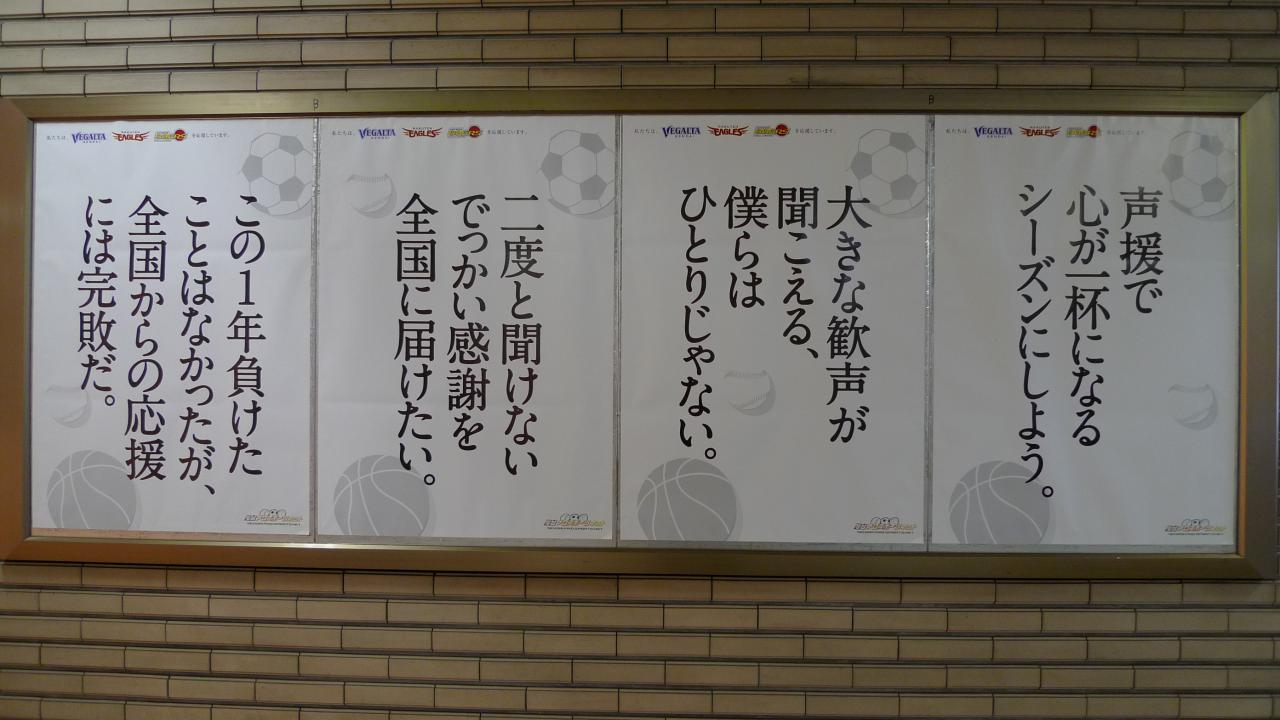 私たちは、VEGALTA EAGLES を応援しています。
声援で
心が一杯になる
シーズンにしよう。
私たちは、VEGALTA EAGLES を応援しています。
大きな歓声が
聞こえる、
僕らは
ひとりじゃない。
私たちは、VEGALTA EAGLES を応援しています。
二度と聞けない
でっかい感謝を
全国に届けたい。
私たちは、VEGALTA EAGLES を応援しています。
この1年負けた
ことはなかったが、
全国からの応援
には完敗だ。